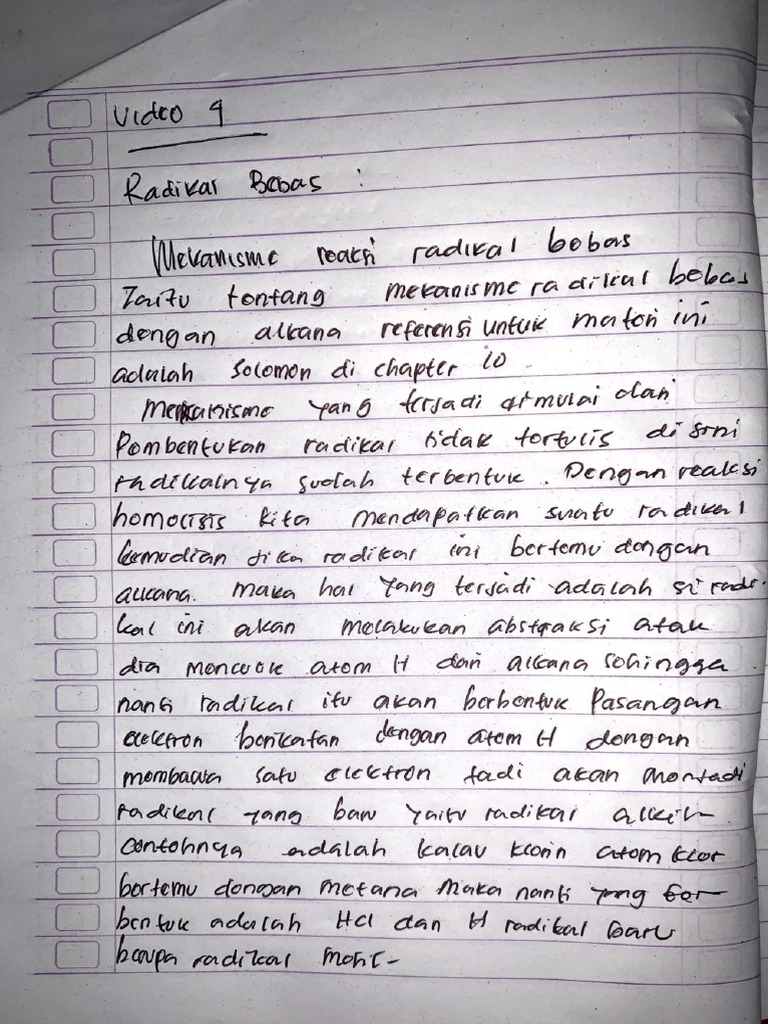 Video 4
Radikal Bebas :
Mekanisme reaksi radikal bebas
Yaitu tentang mekanisme radikal bebas
dengan alkana referensi untuk materi ini
adalah Solomon di chapter 10
Mekanisme yang terjadi dimulai dari
Pembentukan radikal tidak tertulis di sini
radikalnya sudah terbentuk. Dengan reaksi
homolisis kita mendapatkan suatu radikal
kemudian jika radikal ini bertemu dengan
alkana. maka hal yang terjadi adalah si radi-
kal ini akan melakukan abstraksi atau
dia mencuok atom H dari alkana sehingga
nanti radikal itu akan berbentuk Pasangan
elektron berikatan dengan atom H dengan
membawa satu elektron tadi akan menjadi
radikal yang baru yaitu radikal alkil
contohnya adalah kalau klorin atom klor
bertemu dengan metana maka nanti yang ter-
bentuk adalah HCl dan H radikal baru
berupa radikal